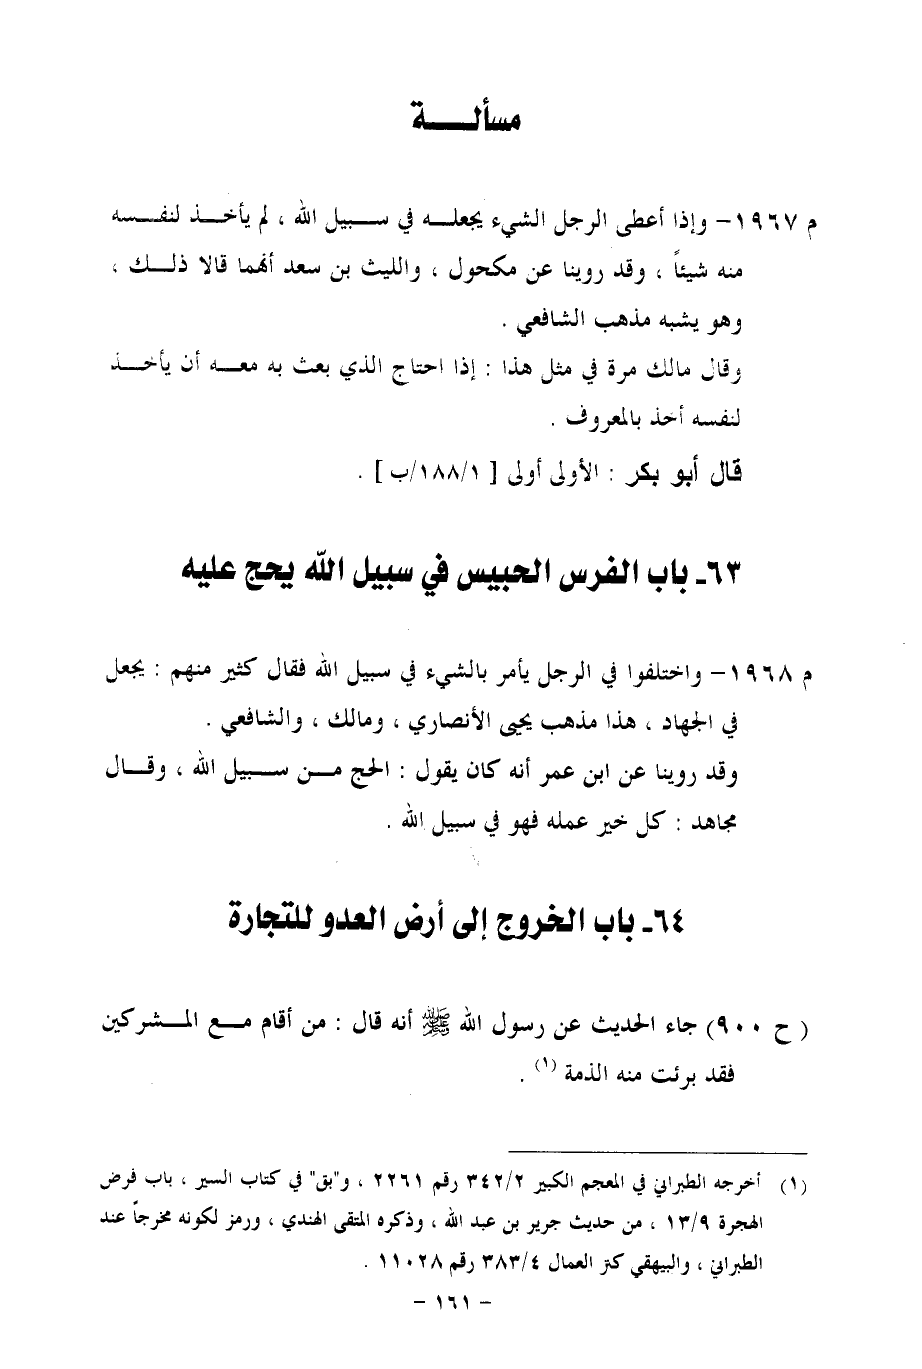 مسألة
م ١٩٦٧- وإذا أعطى الرجل الشيء يجعله في سبيل الله ، لم يأخذ لنفسه
منه شيئاً ، وقد روينا عن مكحول ، والليث بن سعد أنهما قالا ذلك ،
وهو يشبه مذهب الشافعي .
وقال مالك مرة في مثل هذا : إذا احتاج الذي بعث به معه أن يأخذ
لنفسه أخذ بالمعروف .
قال أبو بكر : الأولى أولى [ ١/١٨٨/ب ] .
٦٣- باب الفرس الحبيس في سبيل الله يحج عليه
م ١٩٦٨- واختلفوا في الرجل يأمر بالشيء في سبيل الله فقال كثير منهم : يجعل
في الجهاد ، هذا مذهب يحيى الأنصاري ، ومالك ، والشافعي .
وقد روينا عن ابن عمر أنه كان يقول : الحج من سبيل الله ، وقال
مجاهد : كل خير عمله فهو في سبيل الله .
٦٤- باب الخروج إلى أرض العدو للتجارة
( ح ٩٠٠) جاء الحديث عن رسول الله ﷺ أنه قال : من أقام مع المشركين
فقد برئت منه الذمة (١) .
(١) أخرجه الطبراني في المعجم الكبير ٣٤٢/٢ رقم ٢٢٦١ ، و"بق" في كتاب السير ، باب فرض
الهجرة ١٣/٩ ، من حديث جرير بن عبد الله ، وذكره المتقى الهندي ، ورمز لكونه مخرجاً عند
الطبراني ، والبيهقي كنز العمال ٣٨٣/٤ رقم ١١٠٢٨ .
- ١٦١ -